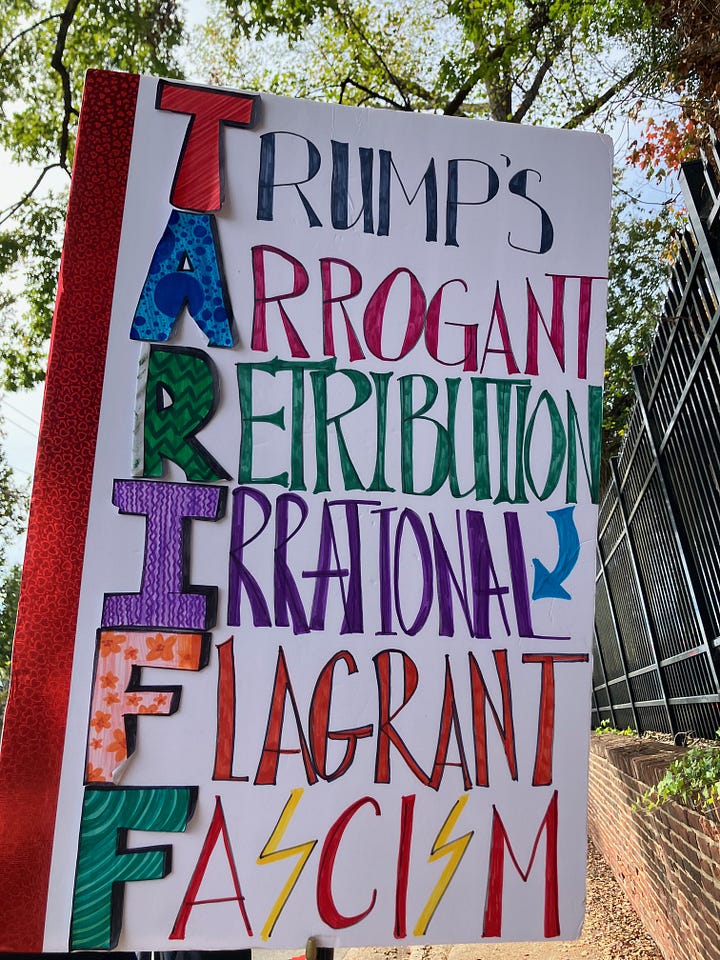 TRUMP'S
ARROGANT
RETRIBUTION
IRRATIONAL
FLAGRANT
FASCISM